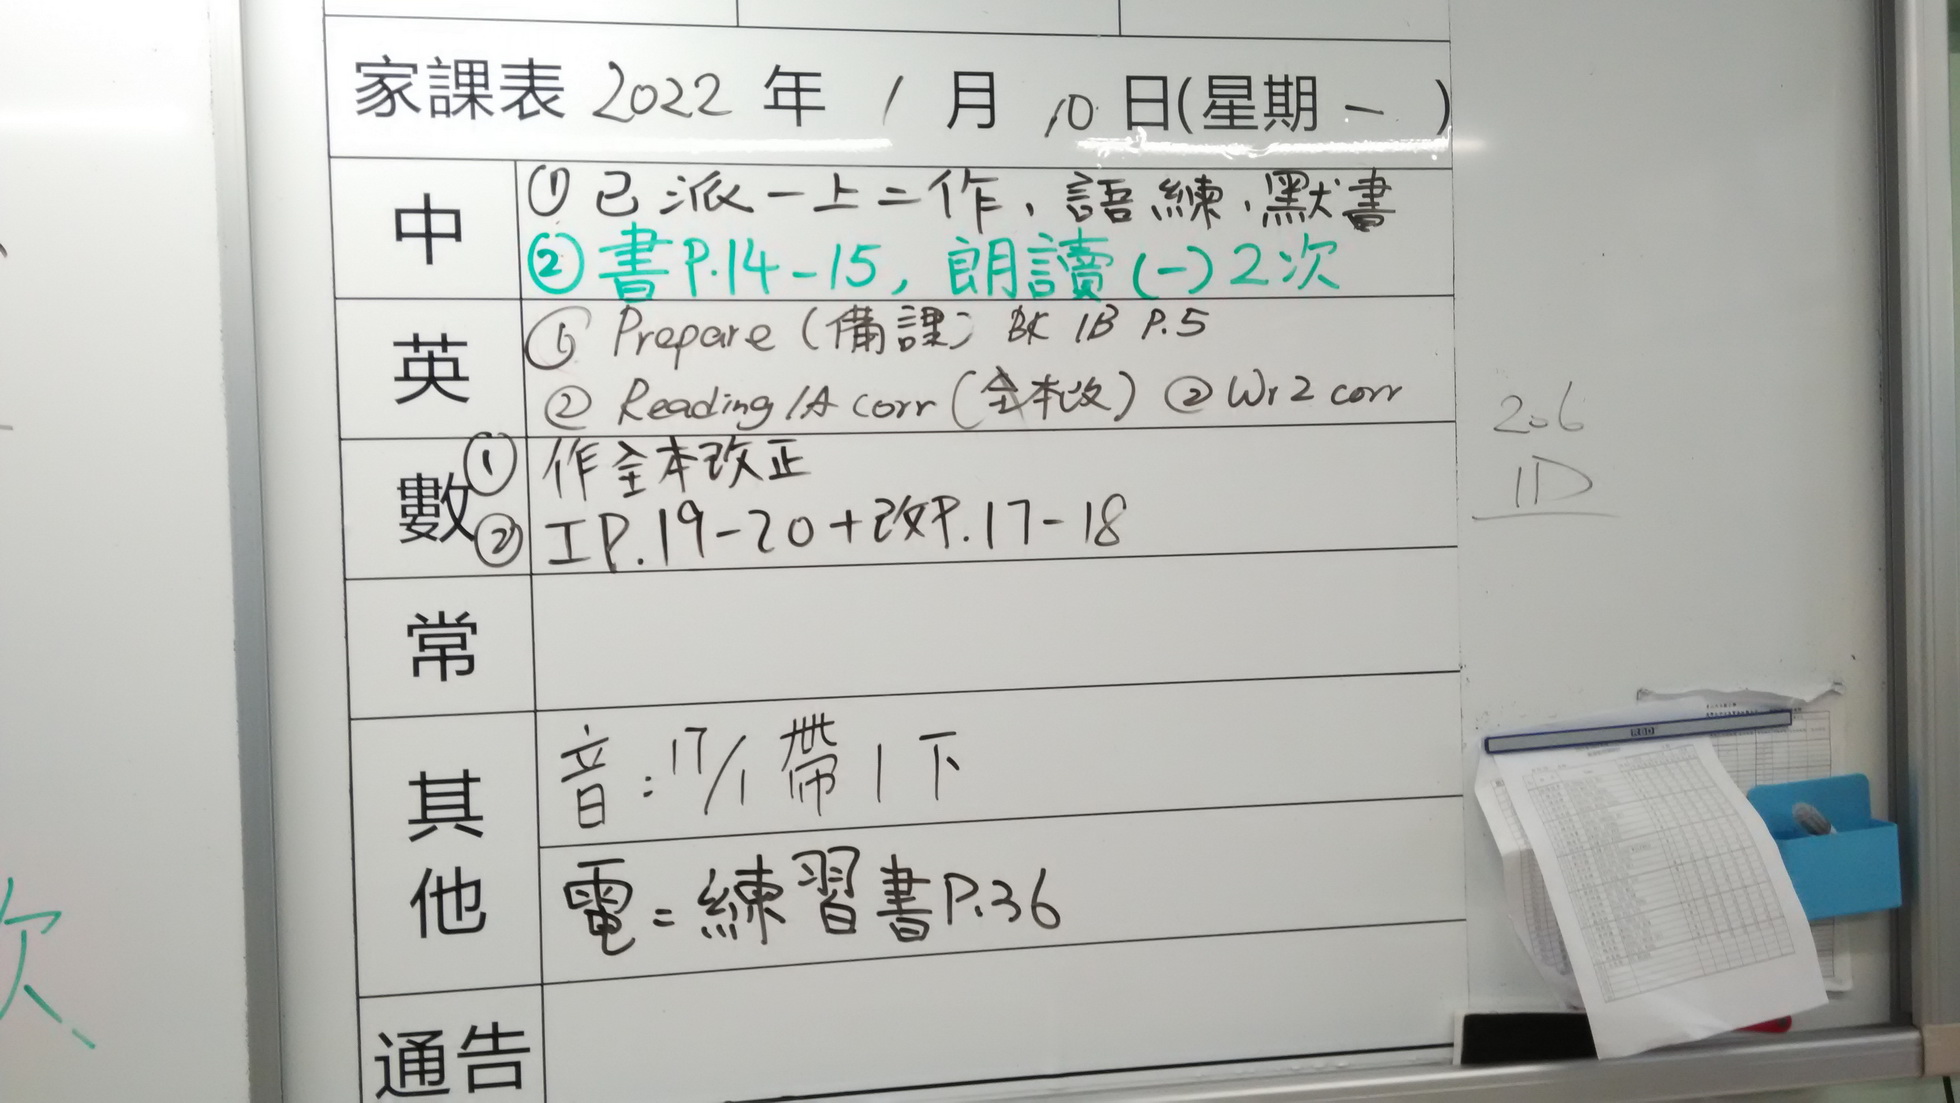 家課表 2022 年 1 月 10 日(星期一)
中
① 已派一上二作、語練、默書
② 書P.14-15, 朗讀(一)2次
英
① Prepare (備課) BK 1B P.5
② Reading 1A corr (全本改) ② Wr 2 corr
數
① 作全本改正
② 工P.19-20+改P.17-18
常
其他
音:17/1 帶1下
電=練習書P.36
通告
206
1D
次
RBD